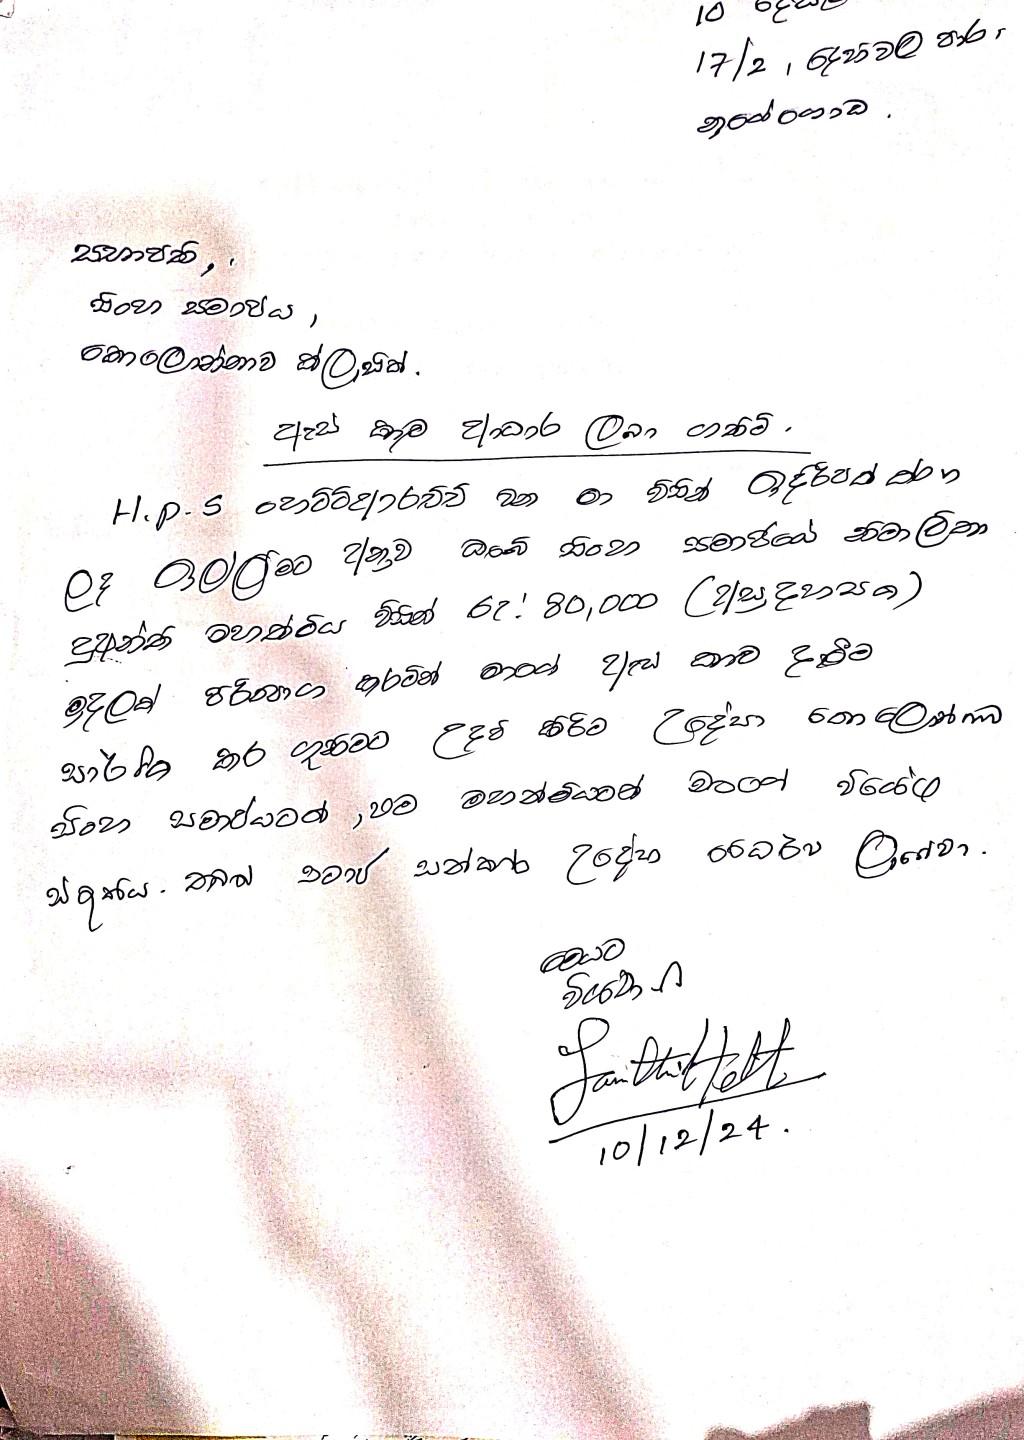 10 දෙසැ
17/2, දෙහිවල පාර,
නුගේගොඩ.
සභාපති,
සිංහ සමාජය,
කොලොන්නාව ක්ලැසික්.
ඇස් කාච ආධාර ලබා ගනිමි.
H.P.S හෙට්ටිආරච්චි වන මා විසින් ඉදිරිපත් කරන
ලද ඉල්ලීමට අනුව ඔබේ සිංහ සමාජයේ
මහත්මිය විසින් රු: 80,000 (අසූදහසක)
මුදලක් පරිත්‍යාග කරමින් මාගේ ඇස් කාච දැමීම
සාර්ථක කර ගැනීමට උදව් කිරීම උදෙසා කොලොන්නාව
සිංහ සමාජයටත්, එම මහත්මියටත් මාගේ විශේෂ
ස්තූතිය. තවත් සමාජ සත්කාර උදෙසා ධෛර්ය ලැබේවා.
මෙයට
විශ්වාසී
10/12/24.